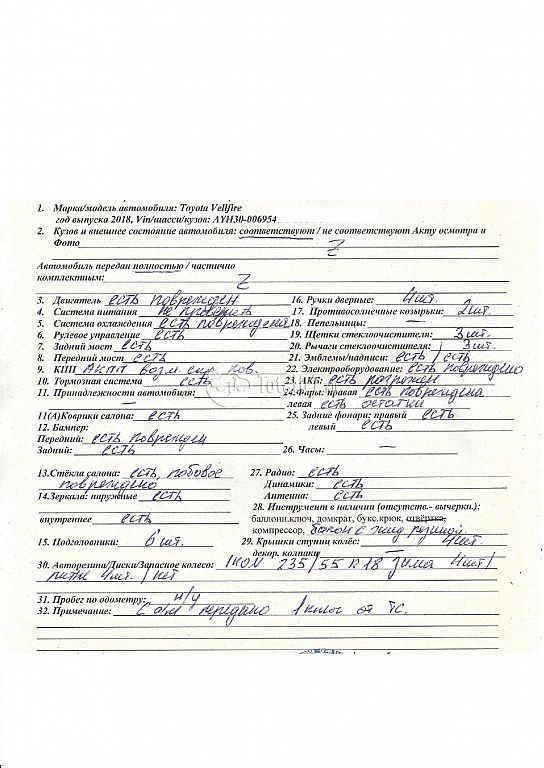 1. Марка/модель автомобиля: Toyota Vellfire
год выпуска 2018, Vin/шасси/кузов: AYH30-006954
2. Кузов и внешнее состояние автомобиля: соответствуют / не соответствуют Акту осмотра и
Фото Z
Автомобиль передан полностью / частично
комплектным: Z
3. Двигатель есть поврежден
4. Система питания не проверить
5. Система охлаждения есть повреждена
6. Рулевое управление есть
7. Задний мост есть
8. Передний мост есть
9. КПП АКПП возм. скр. пов.
10. Тормозная система есть
11. Принадлежности автомобиля:
—
11(А)Коврики салона: есть
12. Бампер:
Передний: есть поврежден
Задний: есть
13.Стёкла салона: есть, лобовое
повреждено
14.Зеркала: наружные есть
внутреннее есть
15. Подголовники: 6 шт.
16. Ручки дверные: 4шт.
17. Противосолнечные козырьки: 2шт.
18. Пепельницы: —
19. Щетки стеклоочистителя: 3 шт.
20. Рычаги стеклоочистителя: 3 шт.
21. Эмблемы/надписи: есть / есть
22. Электрооборудование: есть повреждено
23. АКБ: есть разряжен
24.Фары: правая есть повреждена
левая есть остатки
25. Задние фонари: правый есть
левый есть
26. Часы: —
27. Радио: есть
Динамики: есть
Антенна: есть
28. Инструмент в наличии (отсутств.- вычеркн.):
баллонн.ключ, домкрат, букс.крюк, отвёртка,
компрессор, балон с жид резиной.
29. Крышки ступиц колёс: 4шт.
декор. колпаки —
30. Авторезина/Диски/Запасное колесо: IKON 235/55 R18 зима 4шт/
литые 4шт. / нет
31. Пробег по одометру: н/у
32. Примечание: С а/м передано 1 ключ от ТС.